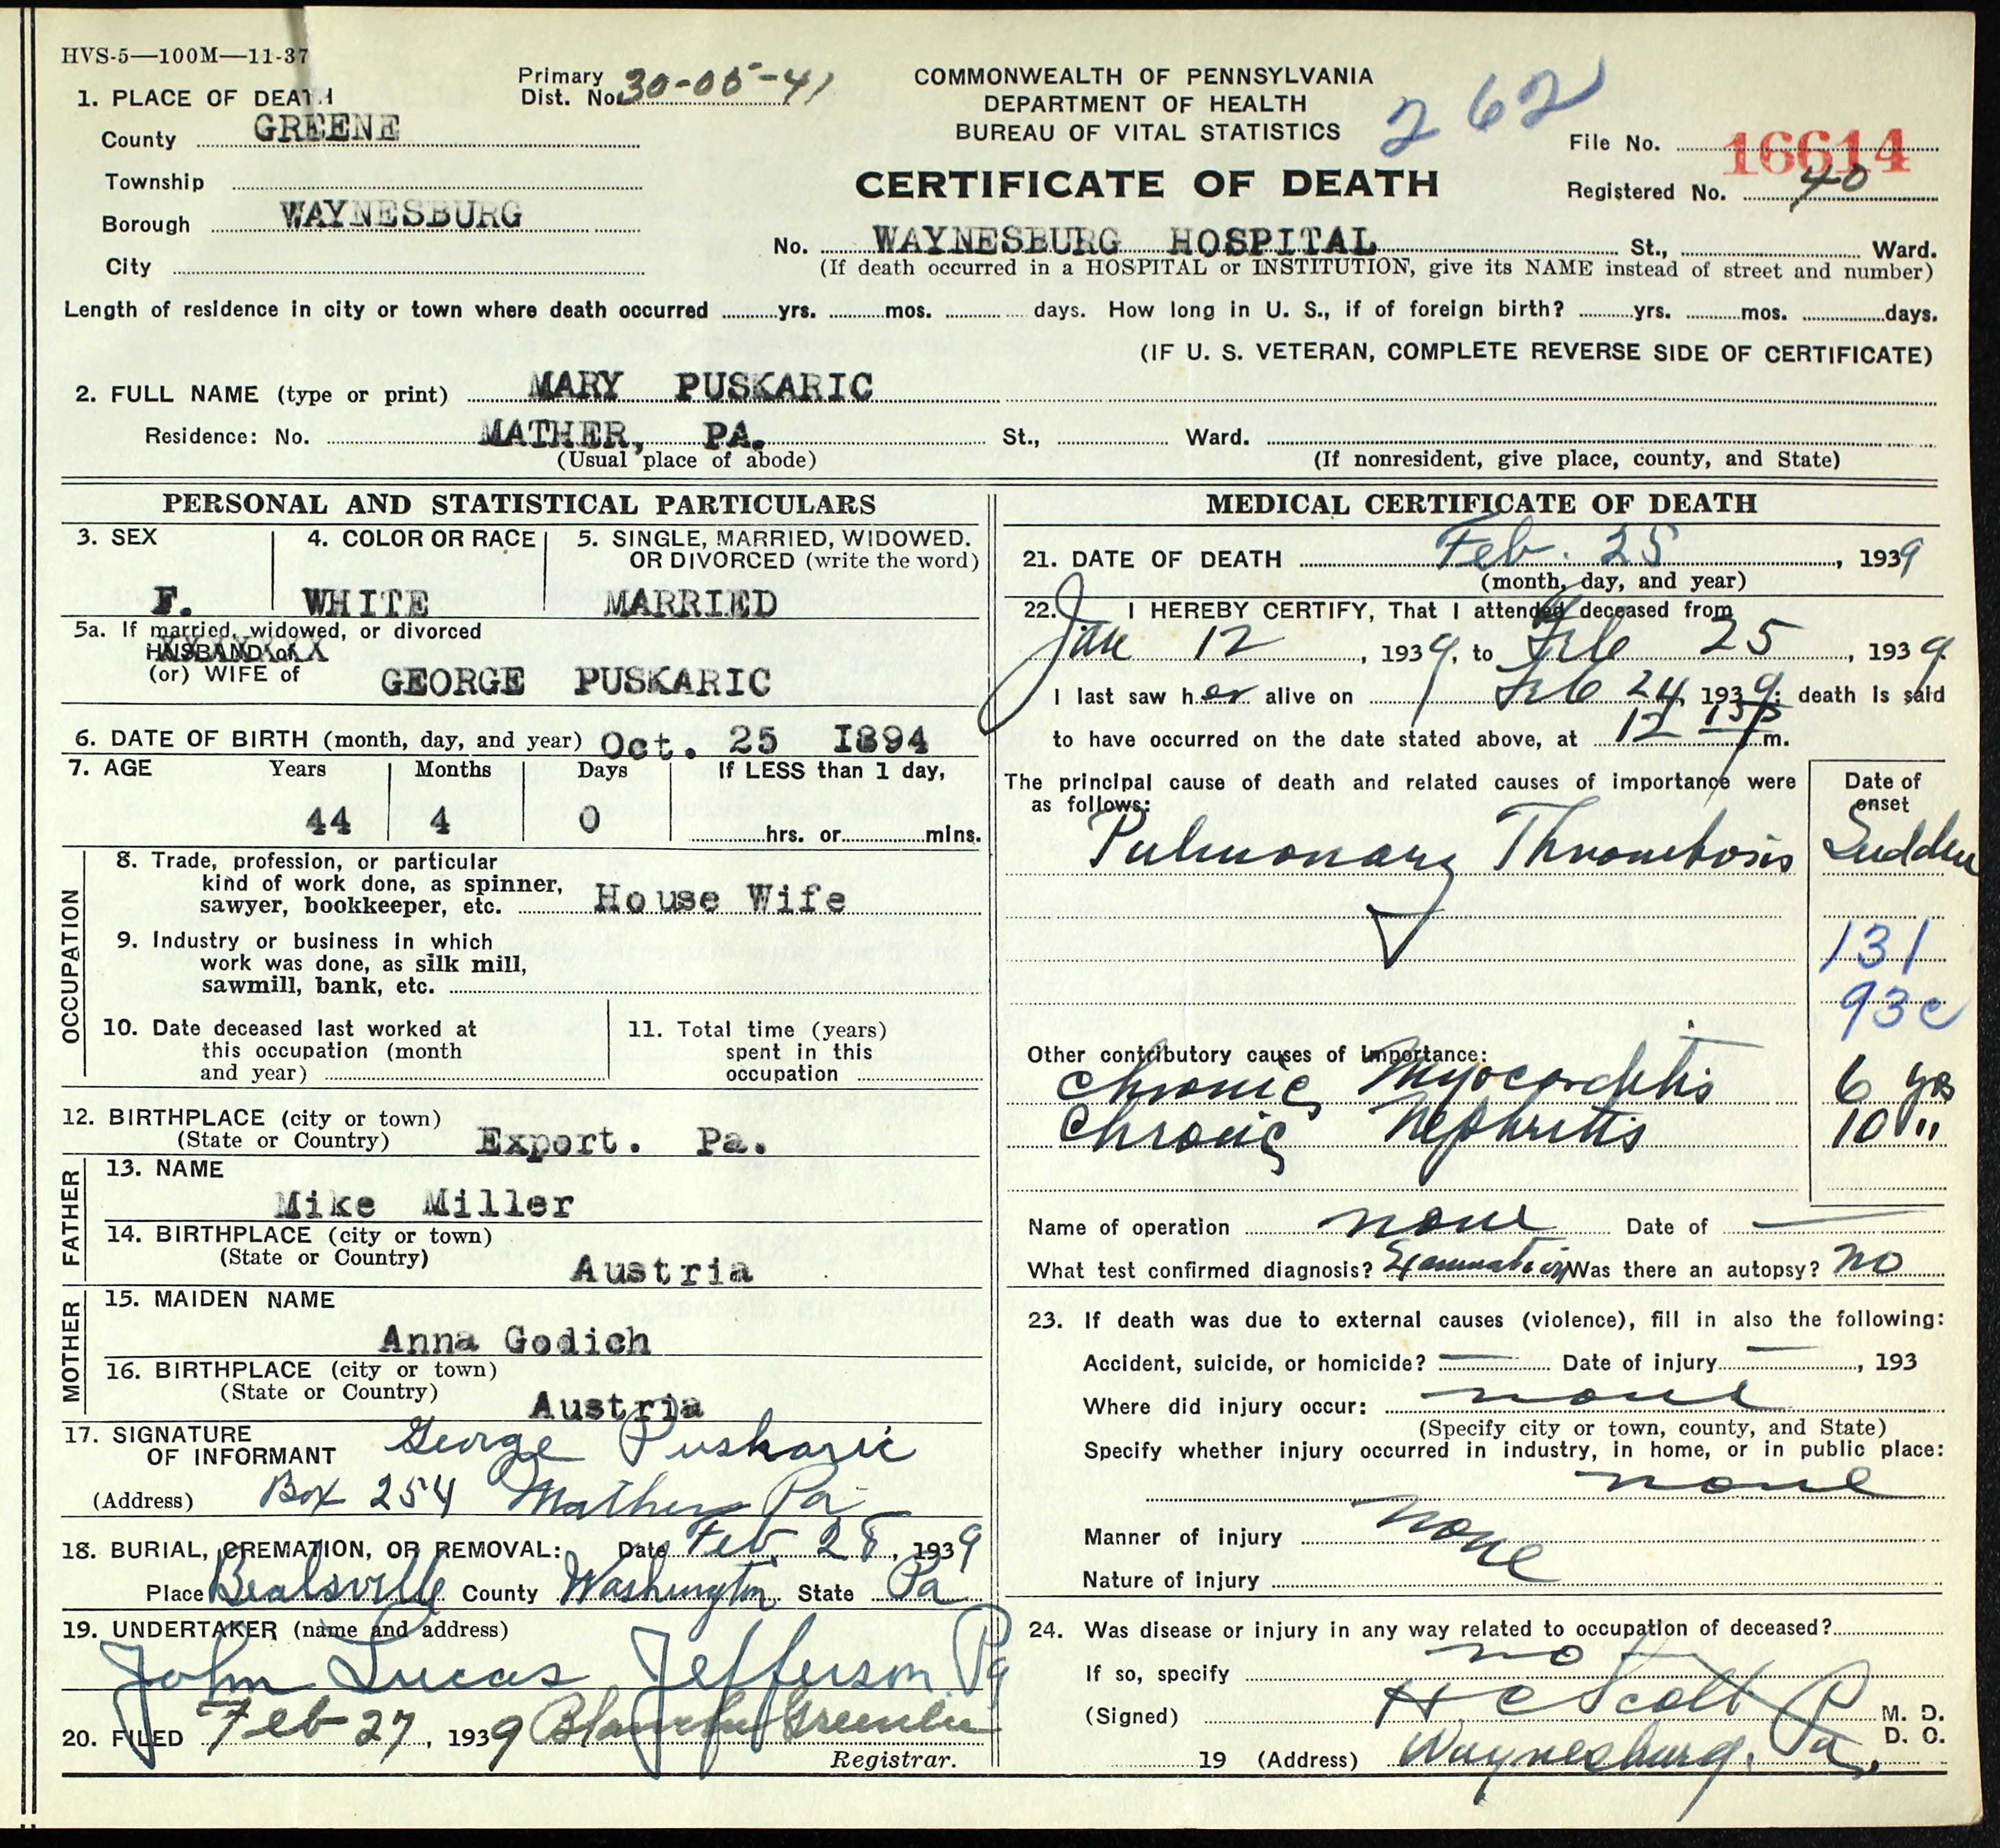 HVS-5—100M—11-37
1. PLACE OF DEATH
Primary Dist. No. 30-05-41
COMMONWEALTH OF PENNSYLVANIA
DEPARTMENT OF HEALTH
BUREAU OF VITAL STATISTICS
262
File No. 16614
Registered No. 40
County GREENE
Township
Borough WAYNESBURG
City
CERTIFICATE OF DEATH
No. WAYNESBURG HOSPITAL St., Ward.
(If death occurred in a HOSPITAL or INSTITUTION, give its NAME instead of street and number)
Length of residence in city or town where death occurred yrs. mos. days. How long in U. S., if of foreign birth? yrs. mos. days.
(IF U. S. VETERAN, COMPLETE REVERSE SIDE OF CERTIFICATE)
2. FULL NAME (type or print) MARY PUSKARIC
Residence: No. MATHER, PA. St., Ward.
(Usual place of abode) (If nonresident, give place, county, and State)
PERSONAL AND STATISTICAL PARTICULARS
3. SEX 4. COLOR OR RACE 5. SINGLE, MARRIED, WIDOWED.
OR DIVORCED (write the word)
F. WHITE MARRIED
5a. If married, widowed, or divorced
HUSBAND of XXXXXXXX
(or) WIFE of GEORGE PUSKARIC
6. DATE OF BIRTH (month, day, and year) Oct. 25 I894
7. AGE Years Months Days If LESS than 1 day,
44 4 0 hrs. or mins.
OCCUPATION
8. Trade, profession, or particular
kind of work done, as spinner,
sawyer, bookkeeper, etc. House Wife
9. Industry or business in which
work was done, as silk mill,
sawmill, bank, etc.
10. Date deceased last worked at
this occupation (month
and year)
11. Total time (years)
spent in this
occupation
12. BIRTHPLACE (city or town)
(State or Country) Export. Pa.
FATHER
13. NAME
Mike Miller
14. BIRTHPLACE (city or town)
(State or Country)
Austria
MOTHER
15. MAIDEN NAME
Anna Godich
16. BIRTHPLACE (city or town)
(State or Country)
Austria
17. SIGNATURE
OF INFORMANT George Puskaric
(Address) Box 254 Mather Pa
18. BURIAL, CREMATION, OR REMOVAL: Date Feb 28, 1939
Place Bealsville County Washington State Pa
19. UNDERTAKER (name and address)
John Lucas Jefferson Pa
20. FILED Feb 27, 1939 Blanche Greenlee
Registrar.
MEDICAL CERTIFICATE OF DEATH
21. DATE OF DEATH Feb. 25, 1939
(month, day, and year)
22. I HEREBY CERTIFY, That I attended deceased from
Jan 12, 1939, to Feb 25, 1939.
I last saw her alive on Feb 24, 1939; death is said
to have occurred on the date stated above, at 12 15 P m.
The principal cause of death and related causes of importance were
as follows:
Date of
onset
Pulmonary Thrombosis Sudden
131
93c
Other contributory causes of importance:
Chronic Myocarditis 6 yrs
Chronic Nephritis 10 "
Name of operation none Date of —
What test confirmed diagnosis? Examination Was there an autopsy? no
23. If death was due to external causes (violence), fill in also the following:
Accident, suicide, or homicide? — Date of injury — , 193
Where did injury occur: none
(Specify city or town, county, and State)
Specify whether injury occurred in industry, in home, or in public place:
none
Manner of injury none
Nature of injury
24. Was disease or injury in any way related to occupation of deceased?
no
If so, specify
(Signed) H C Scott M. D.
D. O.
19 (Address) Waynesburg. Pa,